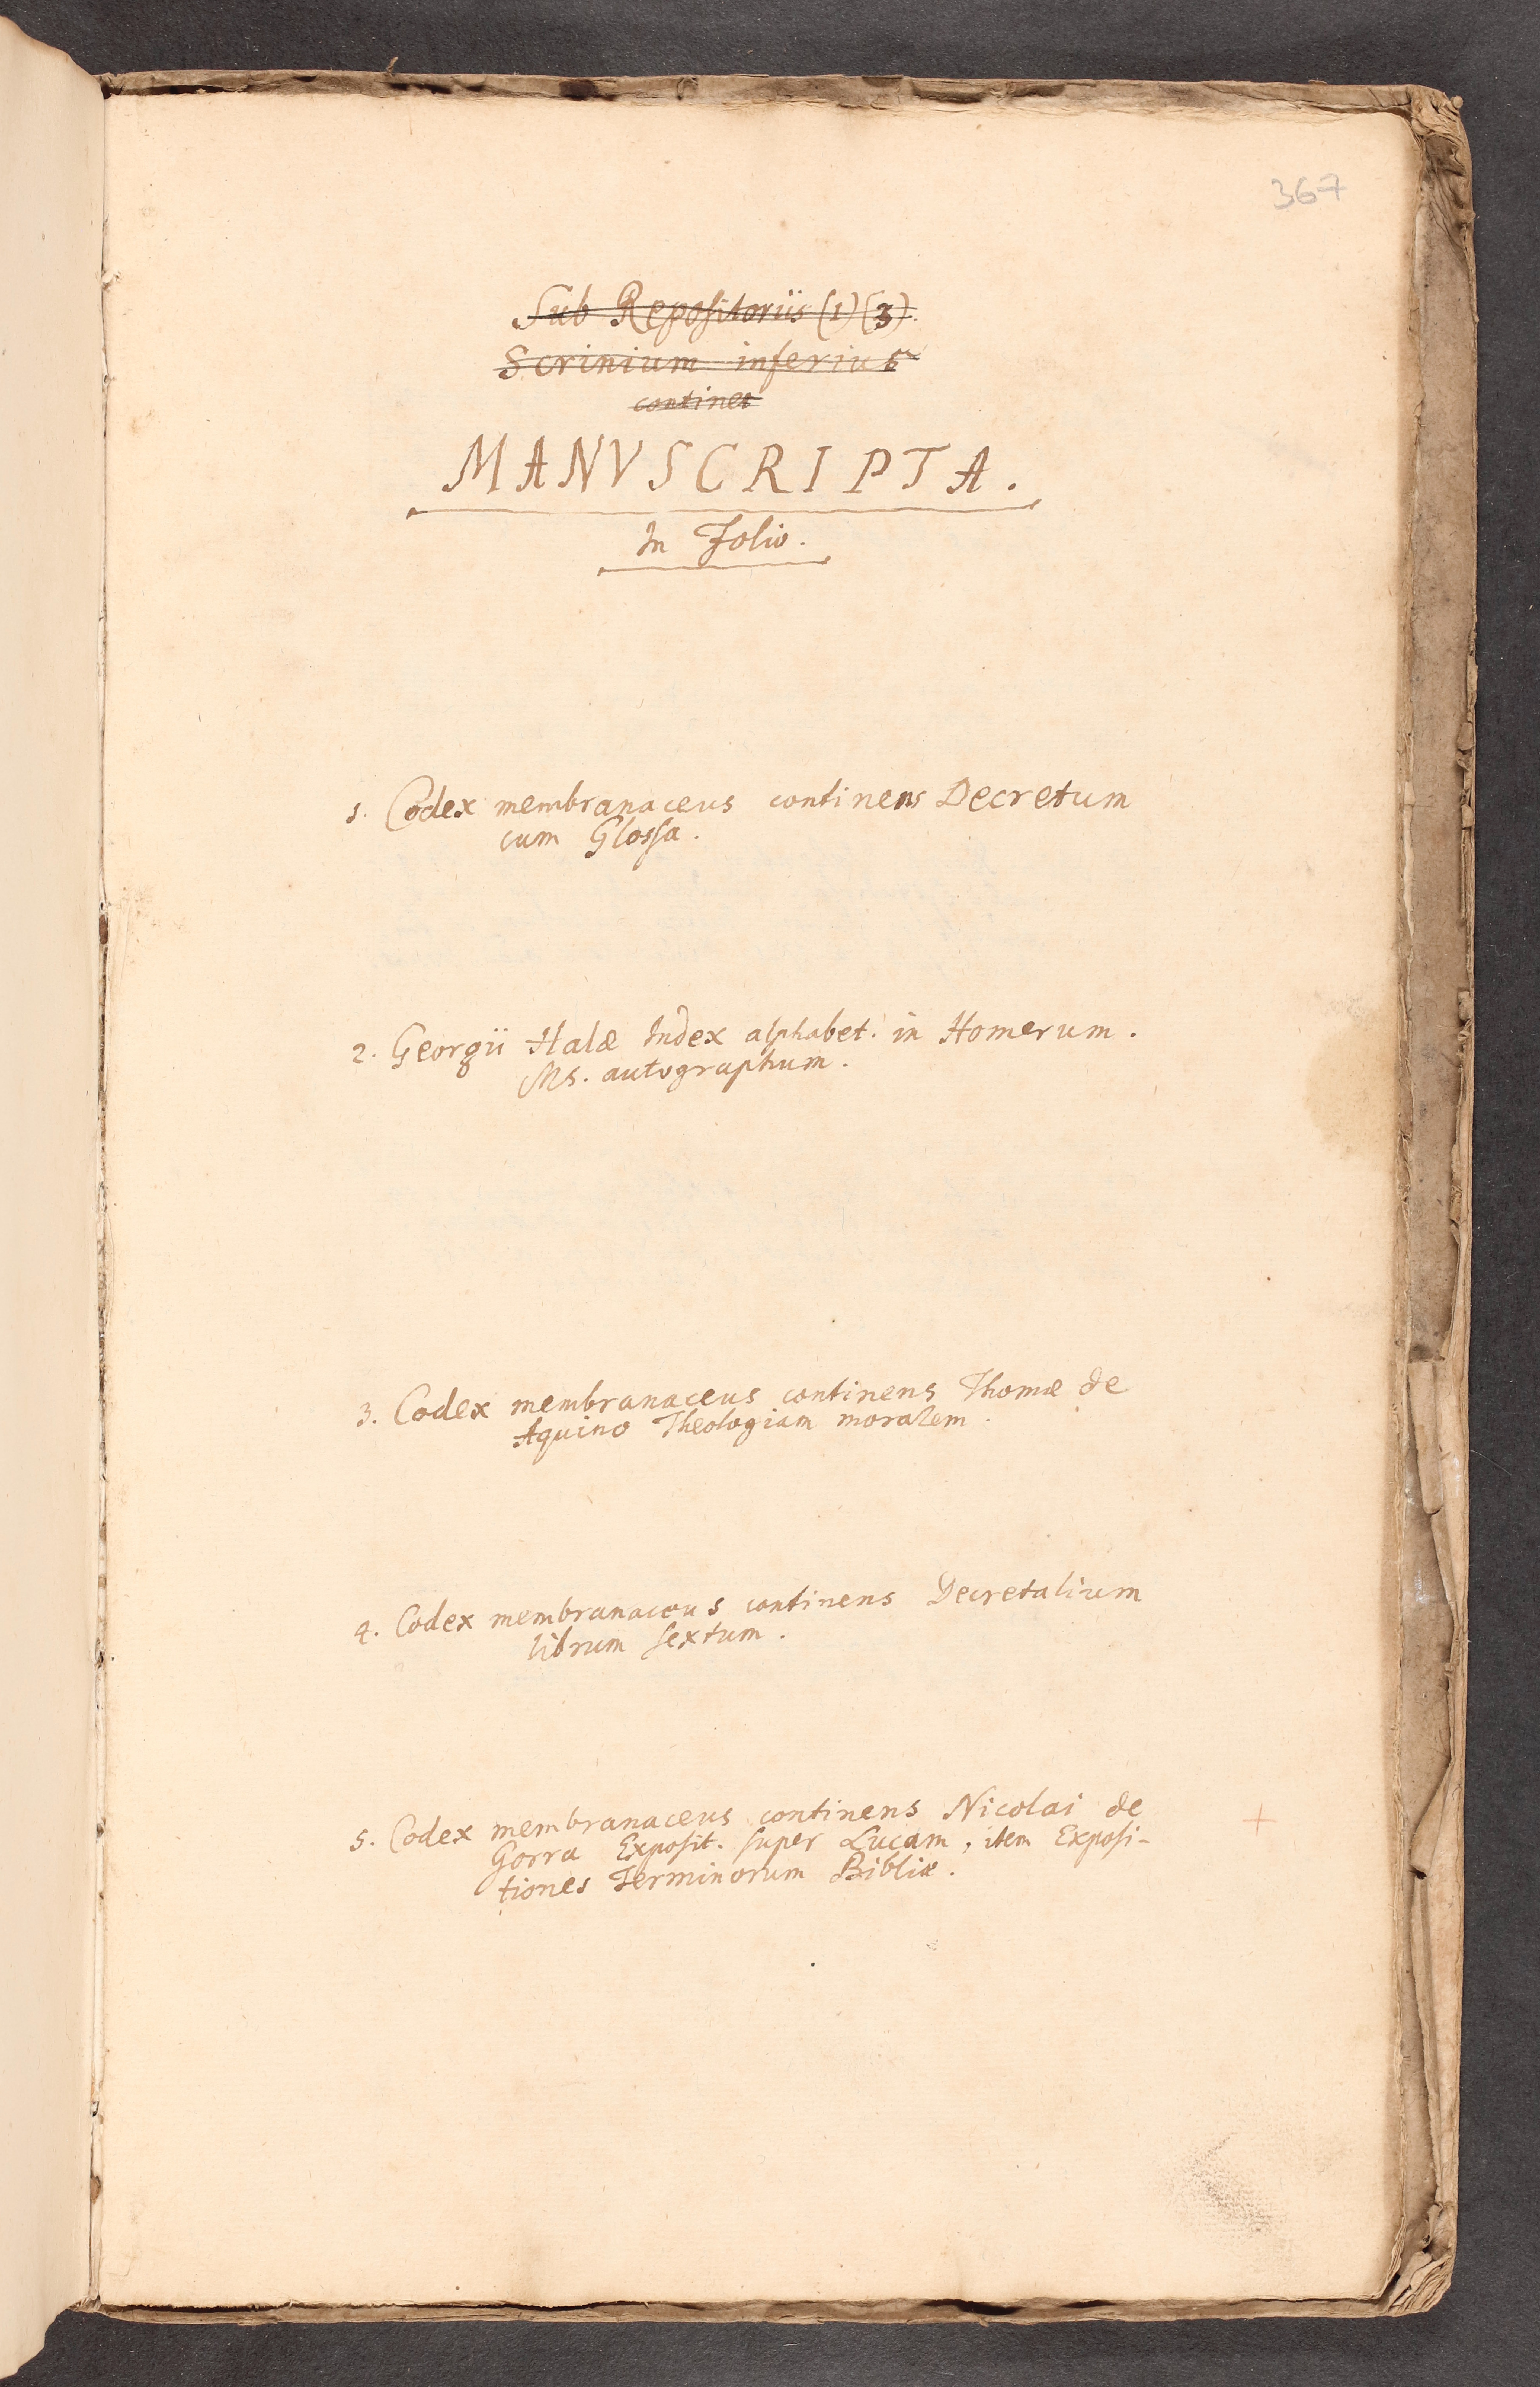 367
Sub Repositoriis (1) (3).
Scrinium inferius
continet
MANVSCRIPTA.
In Folio.
1. Codex membranaceus continens Decretum
cum Glossa.
2. Georgii Halæ Index alphabet. in Homerum.
Ms. autographum.
3. Codex membranaceus continens Thomæ de
Aquino Theologiam moralem.
4. Codex membranaceus continens Decretalium
librum sextum.
5. Codex membranaceus continens Nicolai de
Gorra Exposit. super Lucam, item Exposi-
tiones Terminorum Bibliæ.
+